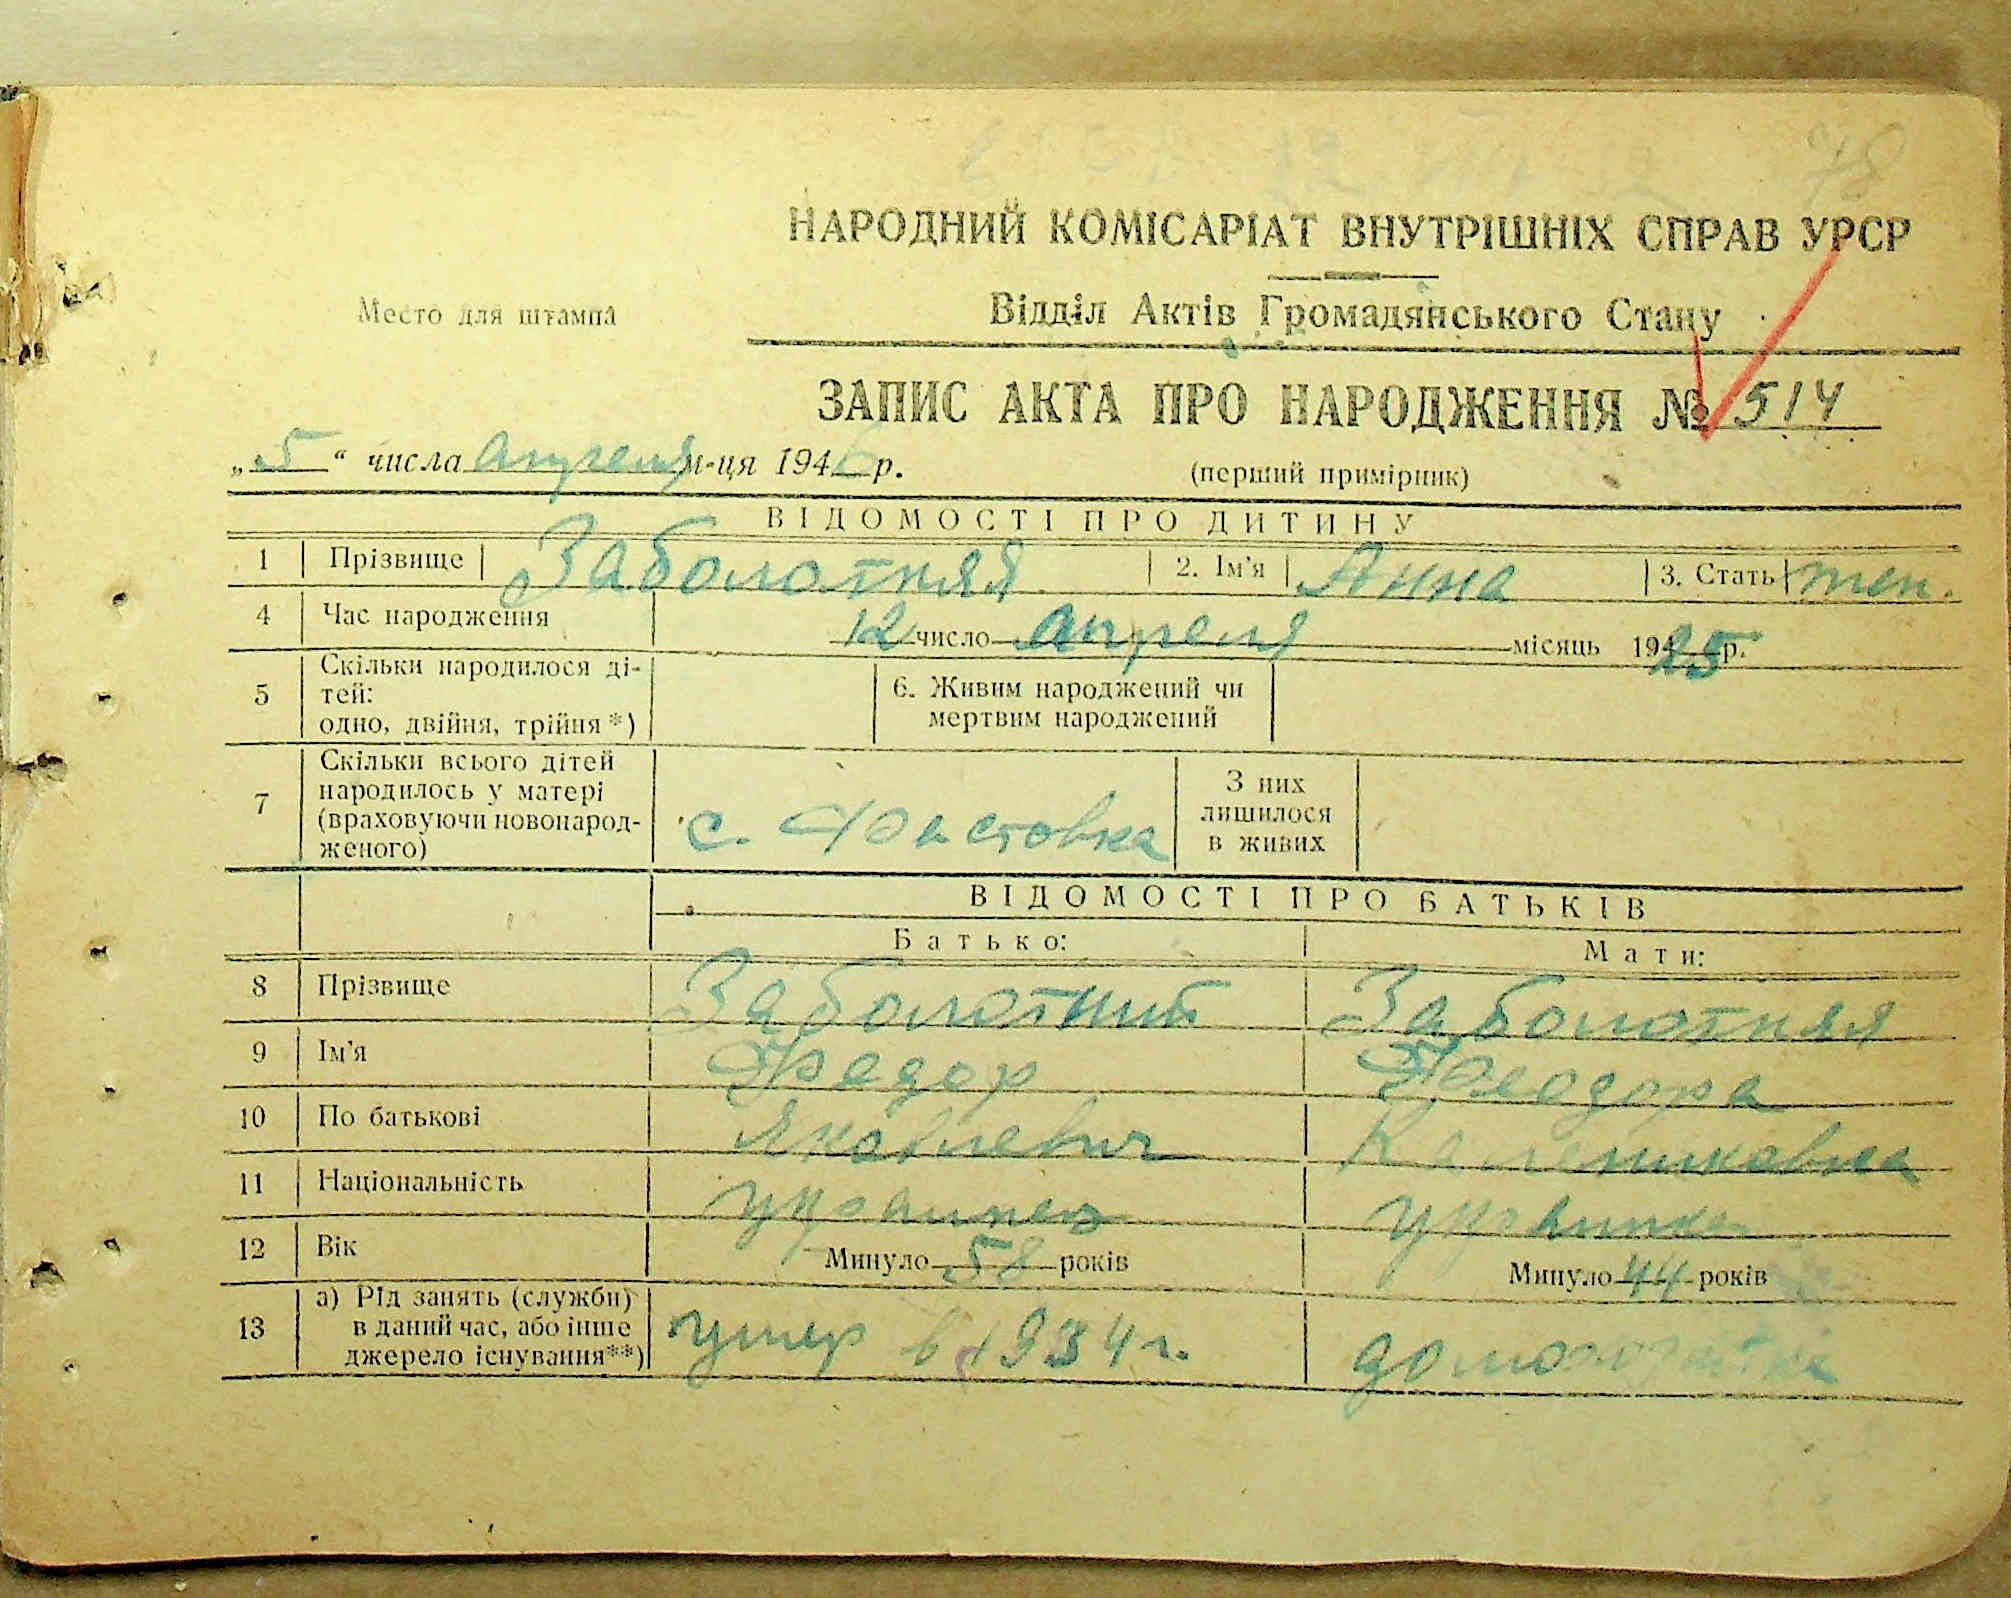 78
НАРОДНИЙ КОМІСАРІАТ ВНУТРІШНІХ СПРАВ УРСР
Место для штампа
Відділ Актів Громадянського Стану
ЗАПИС АКТА ПРО НАРОДЖЕННЯ № 514
„5“ числа апреля м-ця 1946 р.
(перший примірник)
ВІДОМОСТІ ПРО ДИТИНУ
1 Прізвище Заболотняя 2. Ім'я Анна 3. Стать жен.
4 Час народження 12 число апреля місяць 1925 р.
5 Скільки народилося ді-
тей:
одно, двійня, трійня*)
6. Живим народжений чи
мертвим народжений
7 Скільки всього дітей
народилось у матері
(враховуючи новонарод-
женого)
с. Фастовка
З них
лишилося
в живих
ВІДОМОСТІ ПРО БАТЬКІВ
Батько: Мати:
8 Прізвище Заболотний Заболотняя
9 Ім'я Федор Феодора
10 По батькові Яковлевич Калениковна
11 Національність украинец украинка
12 Вік Минуло 58 років Минуло 44 років
13 а) Рід занять (служби)
в даний час, або інше
джерело існування**)
умер в 1934 г. домохозяйка